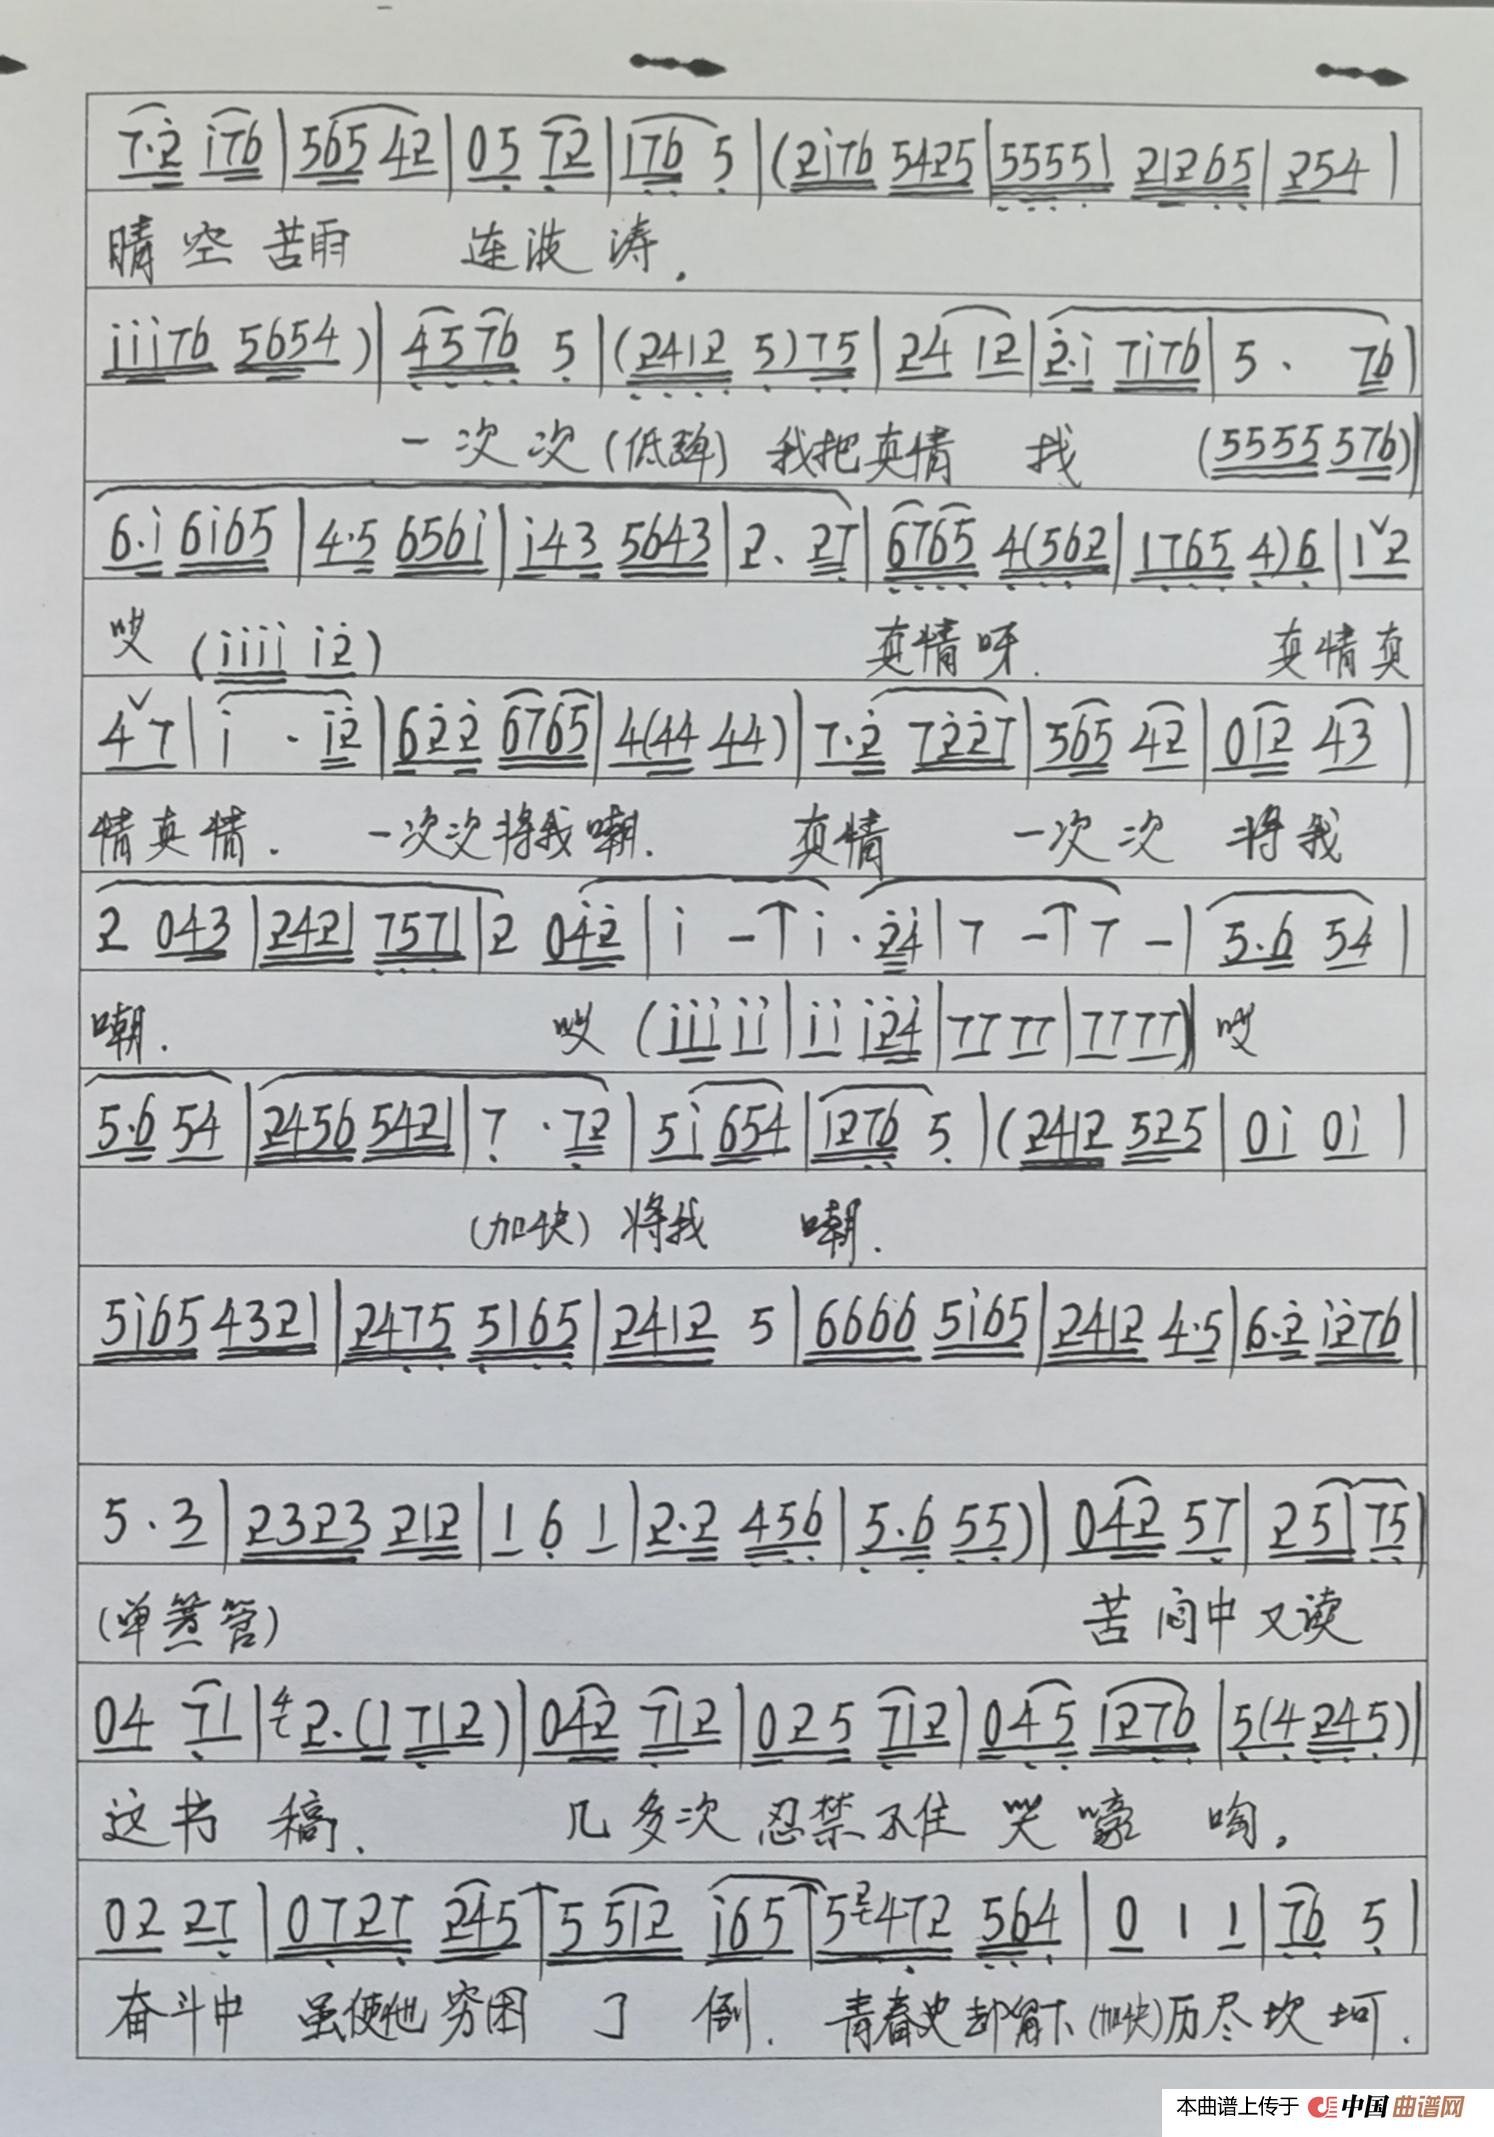 7·2 i76|565 42|05 72|176 5|(2i76 5425|5551 21265|254|
晴空苦雨 连波涛.
iii76 5654)|4576 5|(2412 5)75|24 12|2·i 7i76|5· 76|
一次次(低 ) 我把真情 找 (5555 576)
6·i 6i65|4·5 656i|i43 5643|2· 27|6765 4(562|1765 4)6|1ˇ2
哎 (iiii i2) 真情呀. 真情真
4ˇ7|i · i2|622 6765|4(44 44)|7·2 7227|565 42|012 43|
情真情. 一次次将我嘲. 真情 一次次 将我
2 043|2421 7571|2 042|i -|i·24|7 -|7 -|5·6 54|
嘲. 哎 (iii ii|ii i24|77 77|77 77) 哎
5·6 54|2456 5421|7 ·72|5i 654|1276 5|(2412 525|0i 0i|
(加快) 将我 嘲.
5i65 4321|2475 5165|2412 5|6666 5i65|2412 4·5|6·2 i276|
5·3|2323 212|1 6 1|2·2 456|5·6 55)|042 57|25|75|
(单 管) 苦闷中又读
04 71|4 2·(1 712)|042 712|025 712|045 1276|5(4 245)|
这书 稿. 几多次 忍禁不住 哭嚎 啕.
02 27|0727 245|5 512 i65|5 2 472 564|0 1 1|76 5|
奋斗中 虽使他穷困 了 倒. 青春史却留下(加快)历尽坎坷.
本曲谱上传于 中国曲谱网